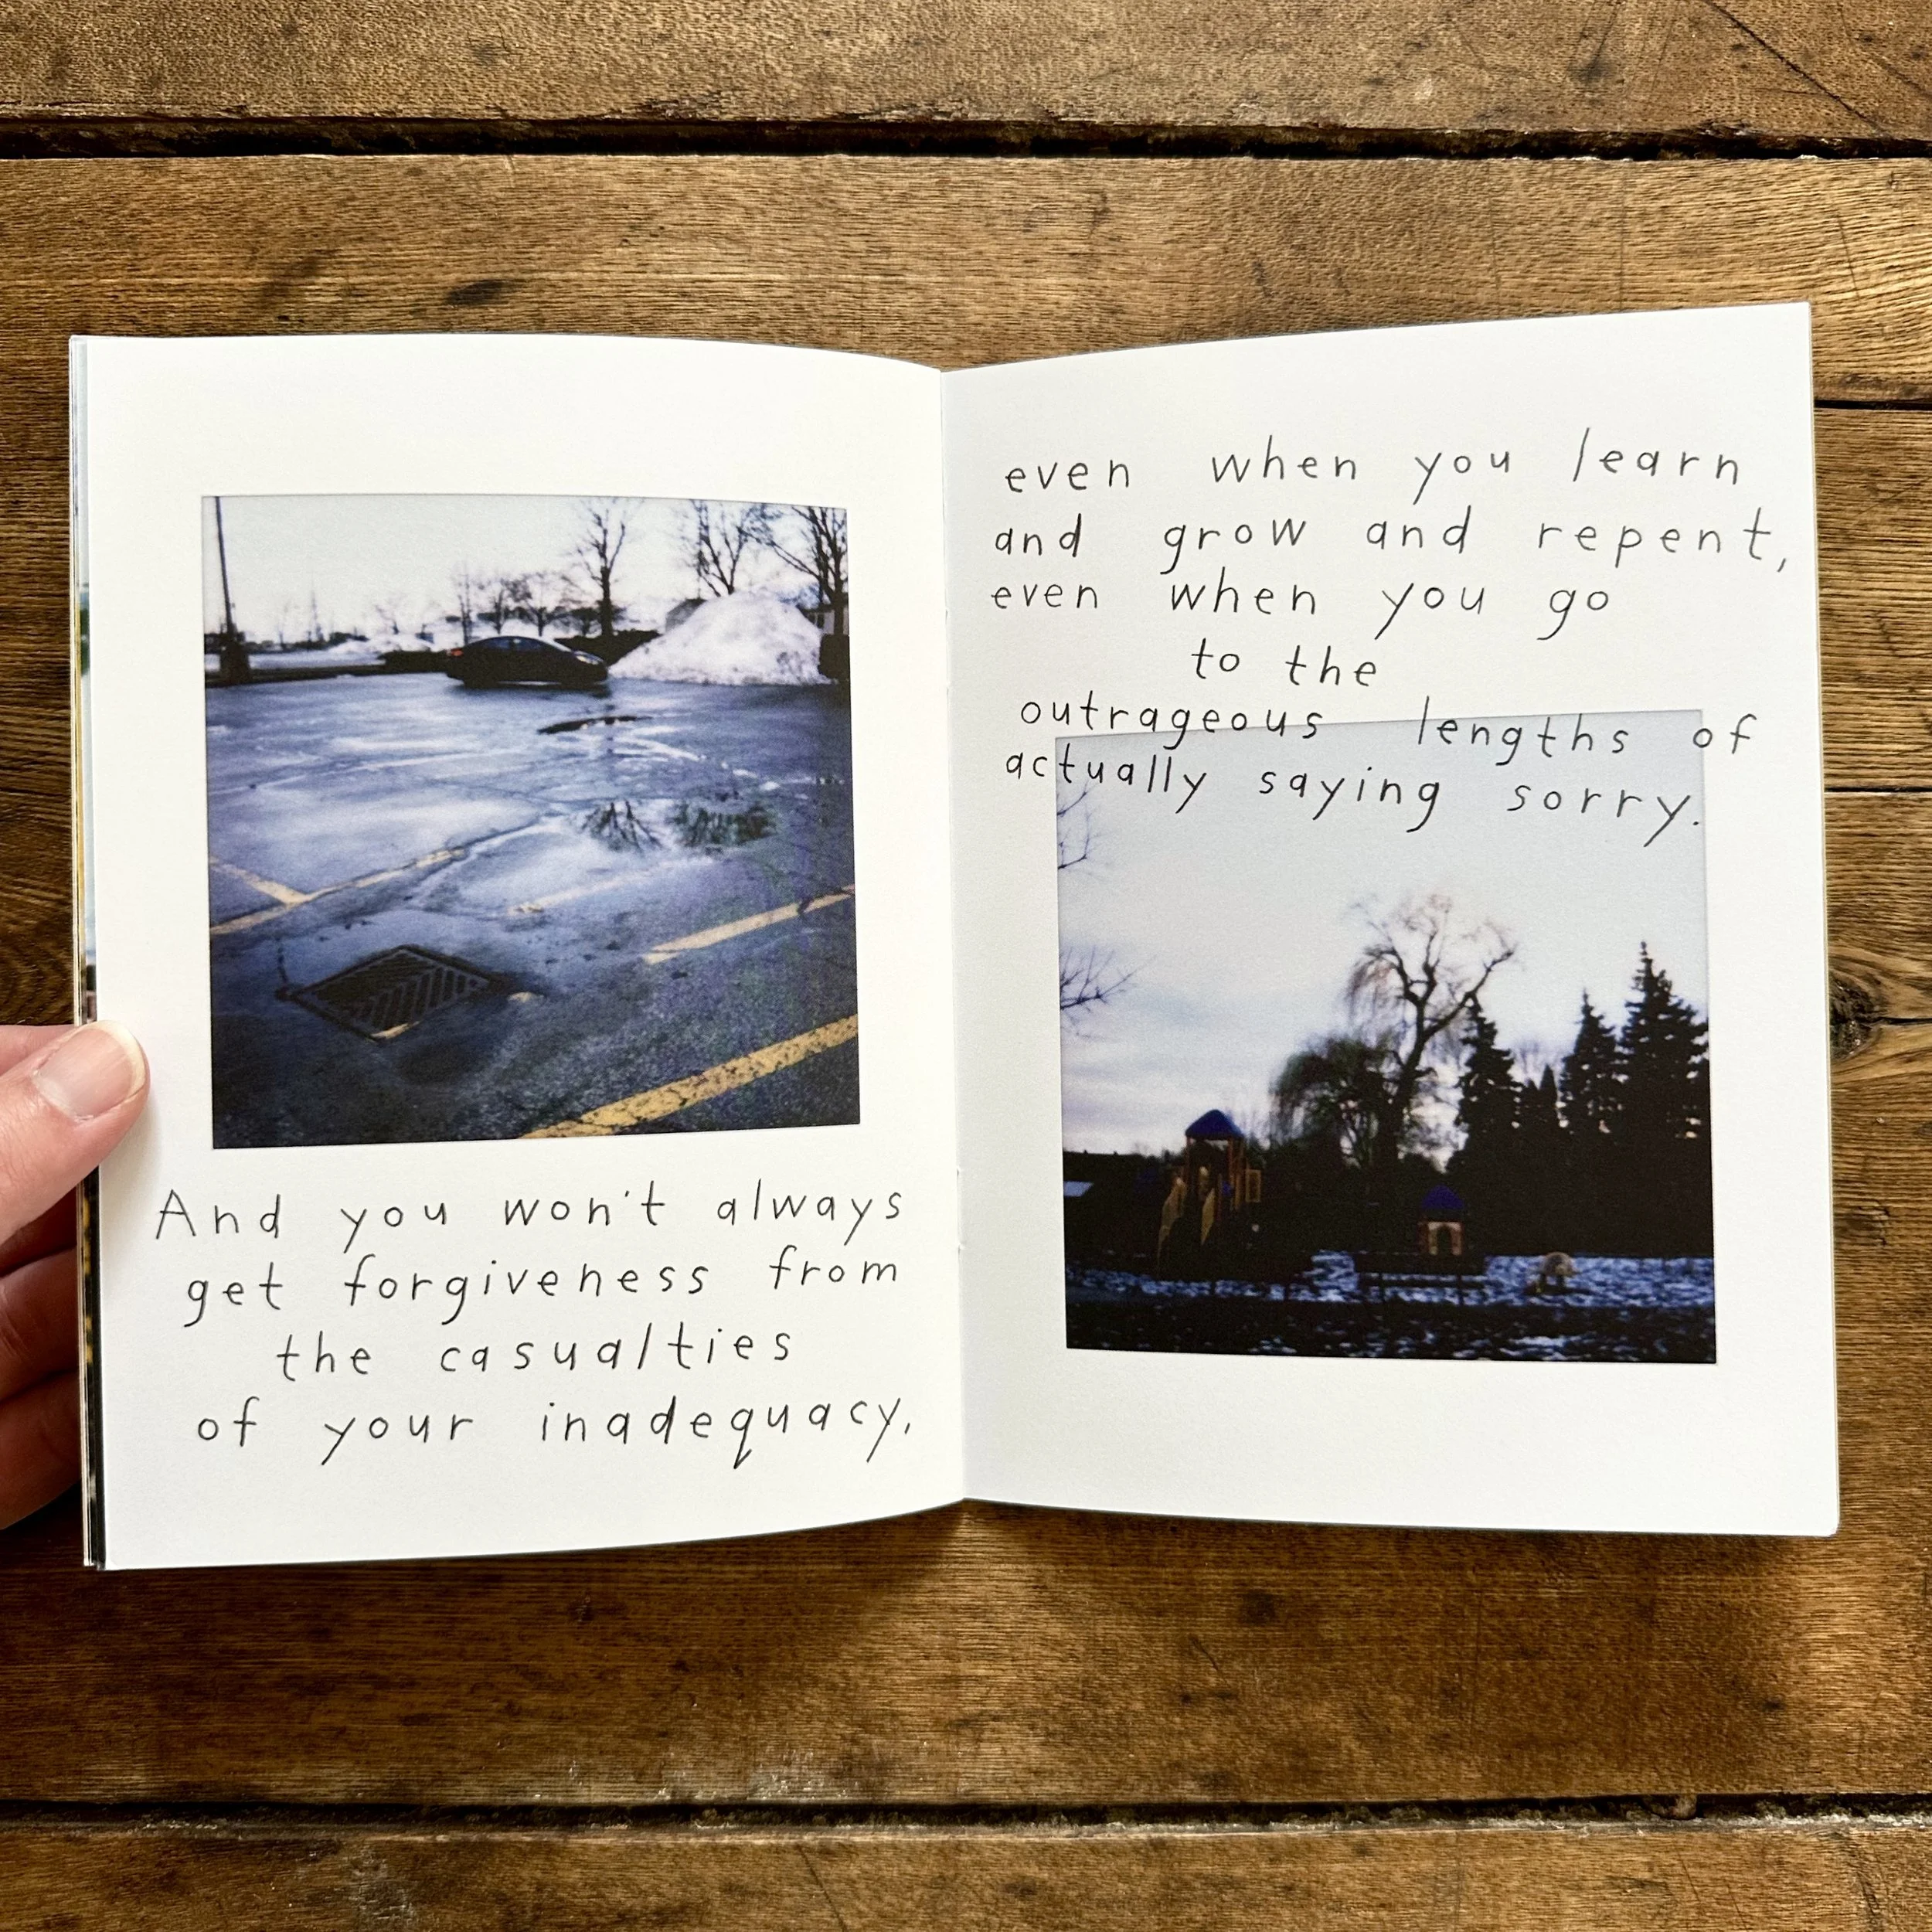 And you won't always
get forgiveness from
the casualties
of your inadequacy,
even when you learn
and grow and repent,
even when you go
to the
outrageous lengths of
actually saying sorry.